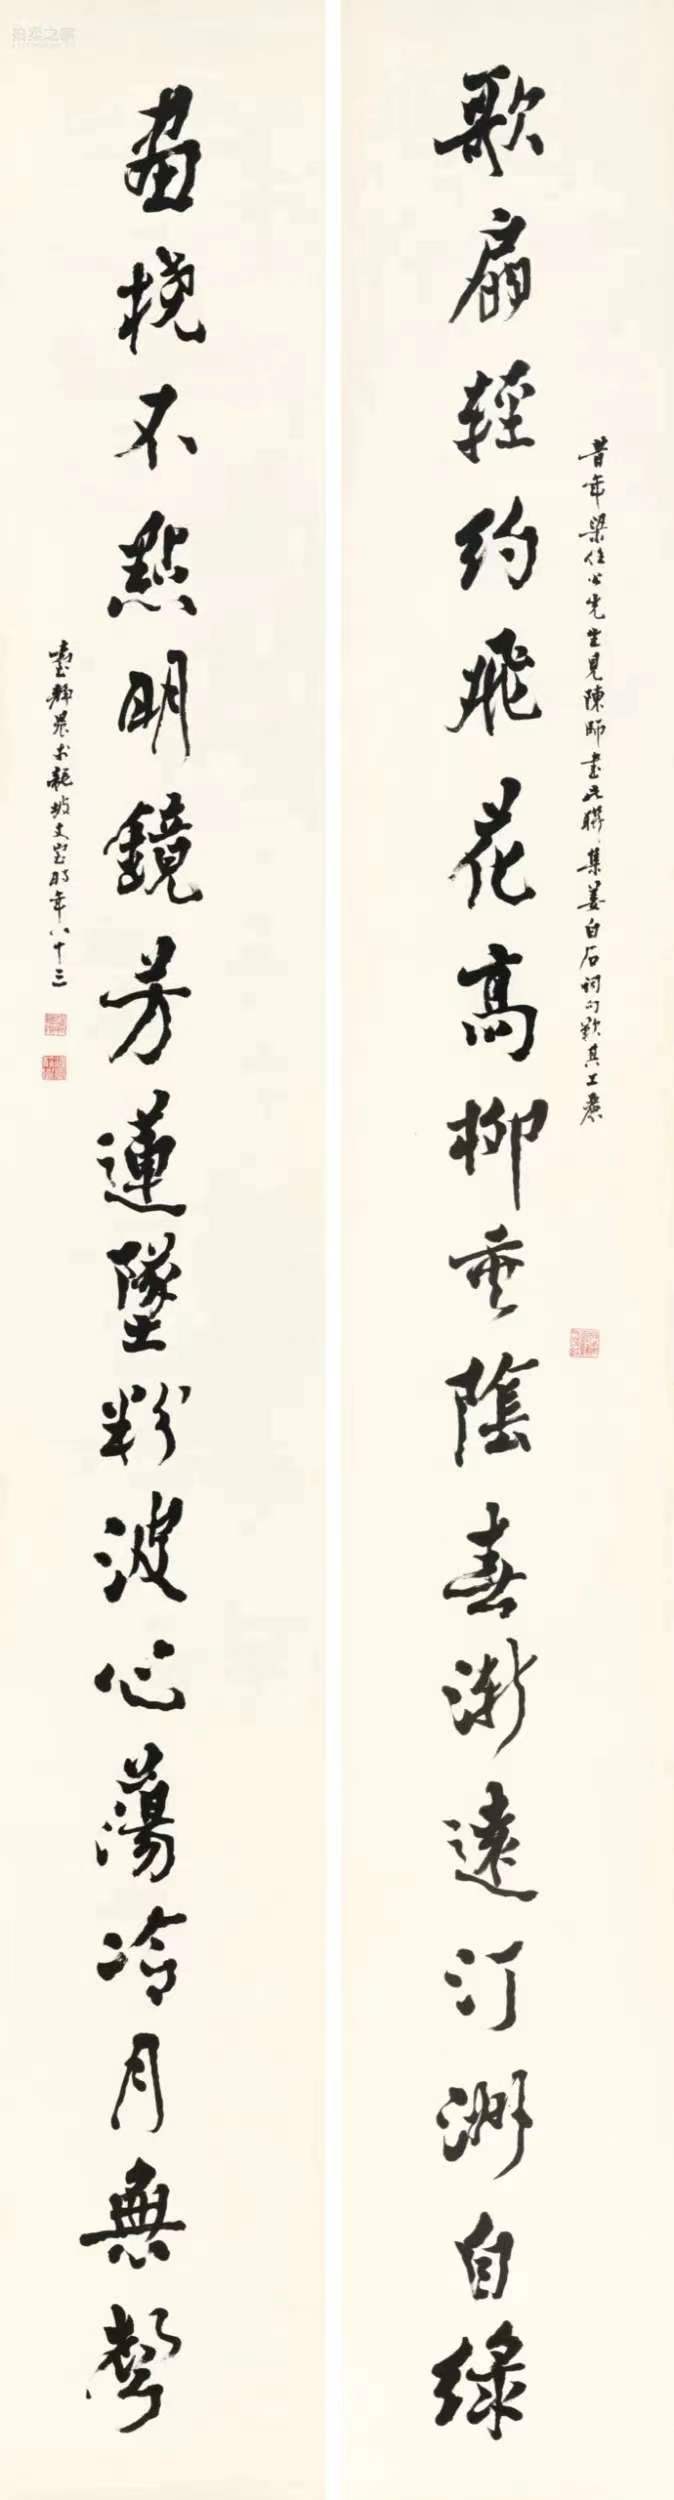 歌扇輕約飛花高柳垂陰春漸遠汀洲自綠
昔年梁任公先生見陳師書此聯集姜白石詞句歎其工麗
畫橈不點明鏡芳蓮墜粉波心蕩冷月無聲
臺靜農於龍坡丈室時年八十三